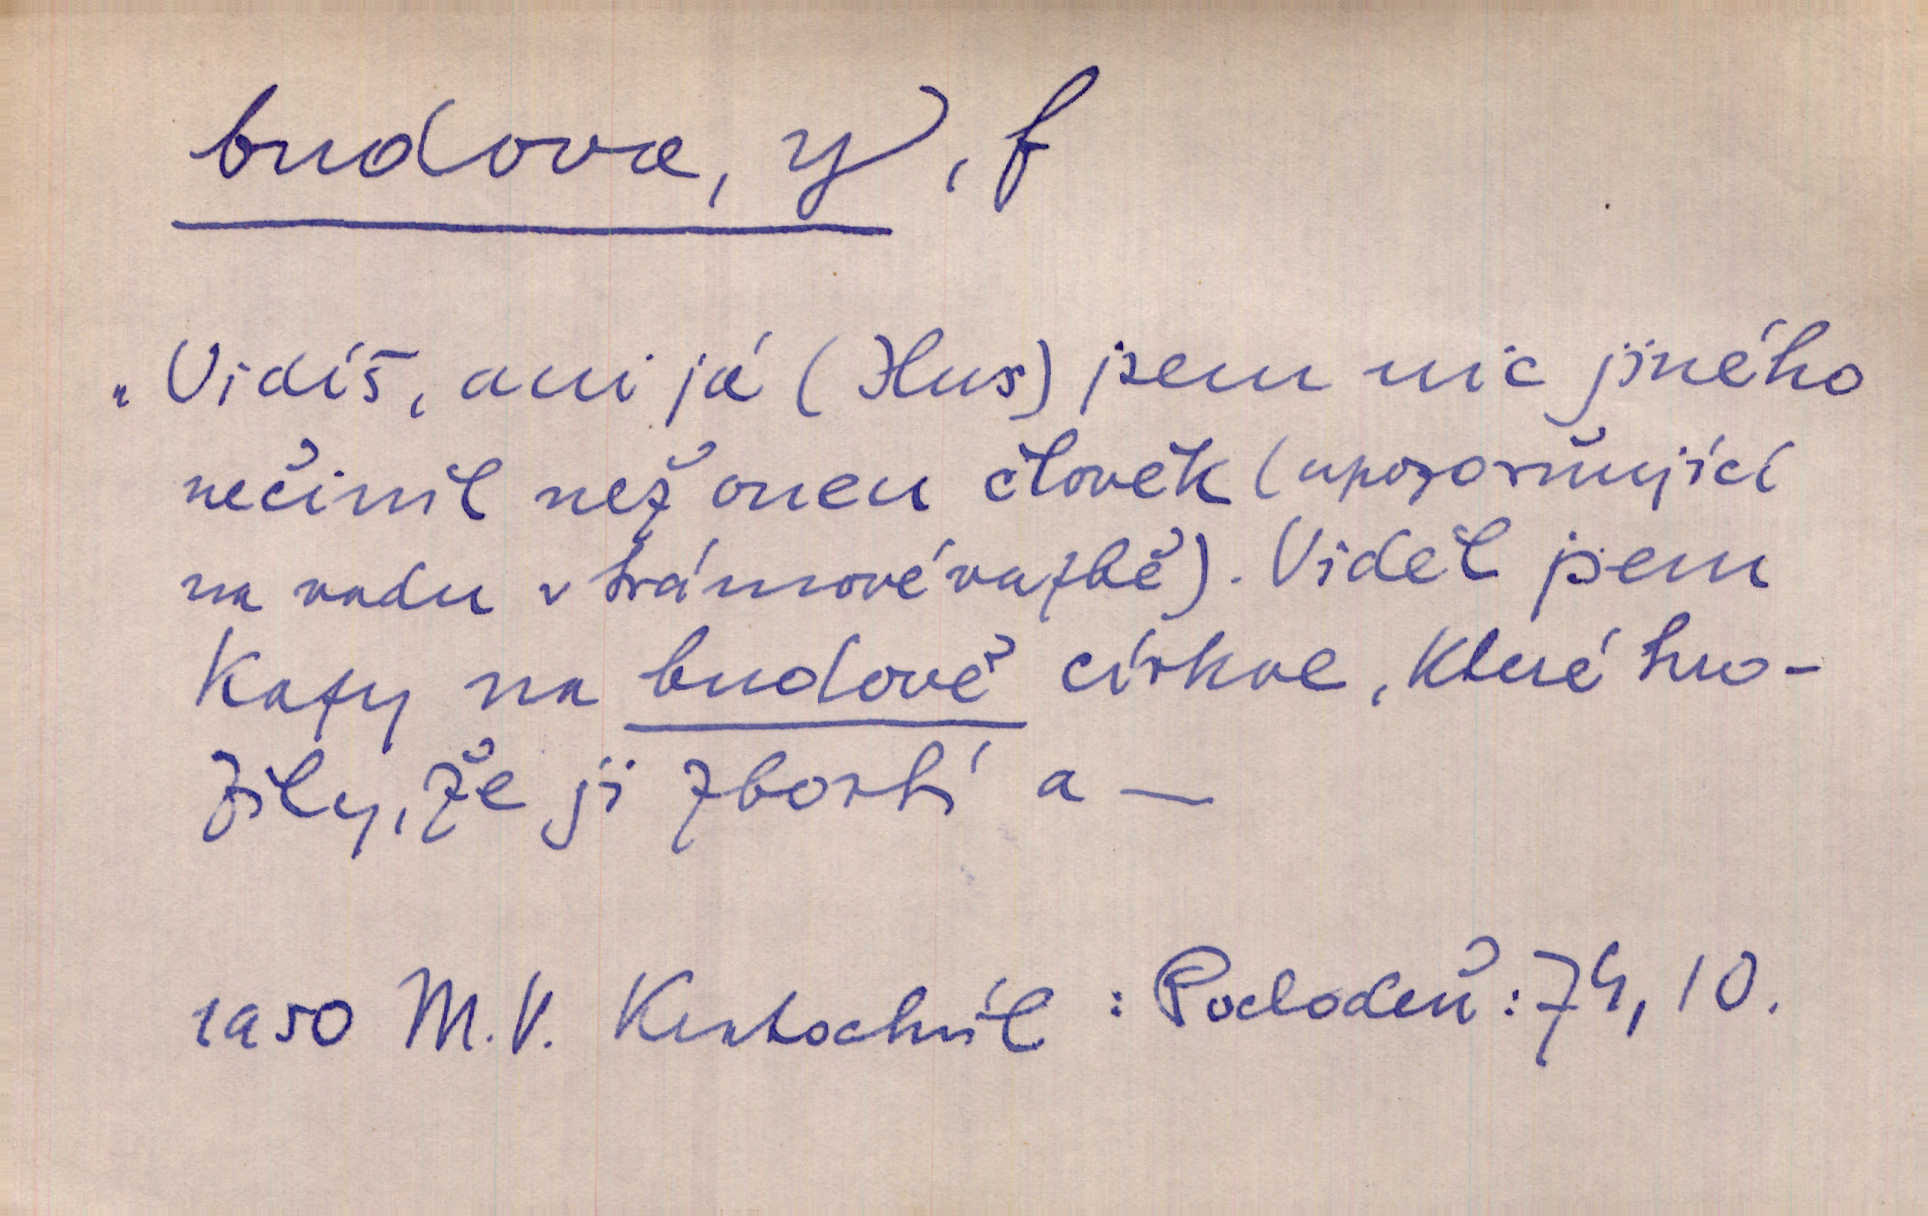 budova, y, f
„Vidíš, ani já (Hus) jsem nic jiného
nečinil než onen člověk (upozorňující
na vadu v trámové vazbě). Viděl jsem
kazy na budově církve, které hro-
zily, že ji zbortí a —
1950 M.V. Kratochvíl : Pochodeň : 74, 10.